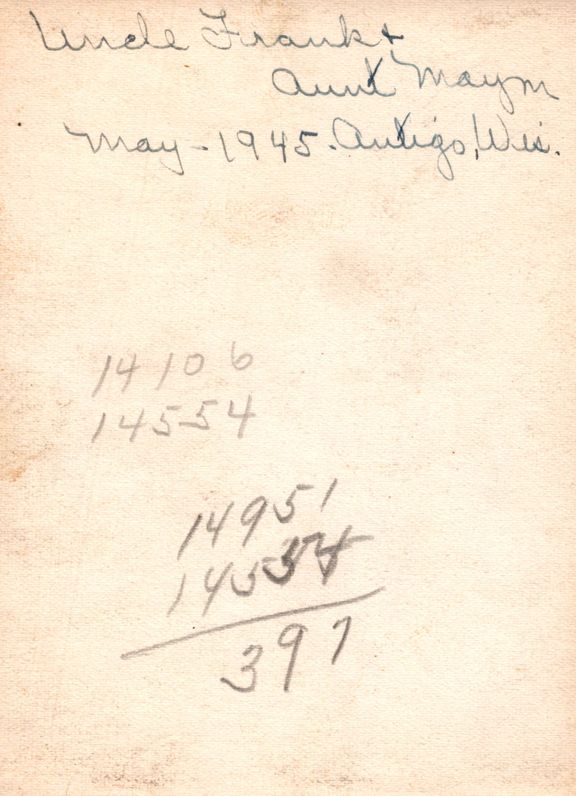 Uncle Frank &
Aunt Maym
May - 1945. Antigo, Wis.
14106
14554
14951
14554
397